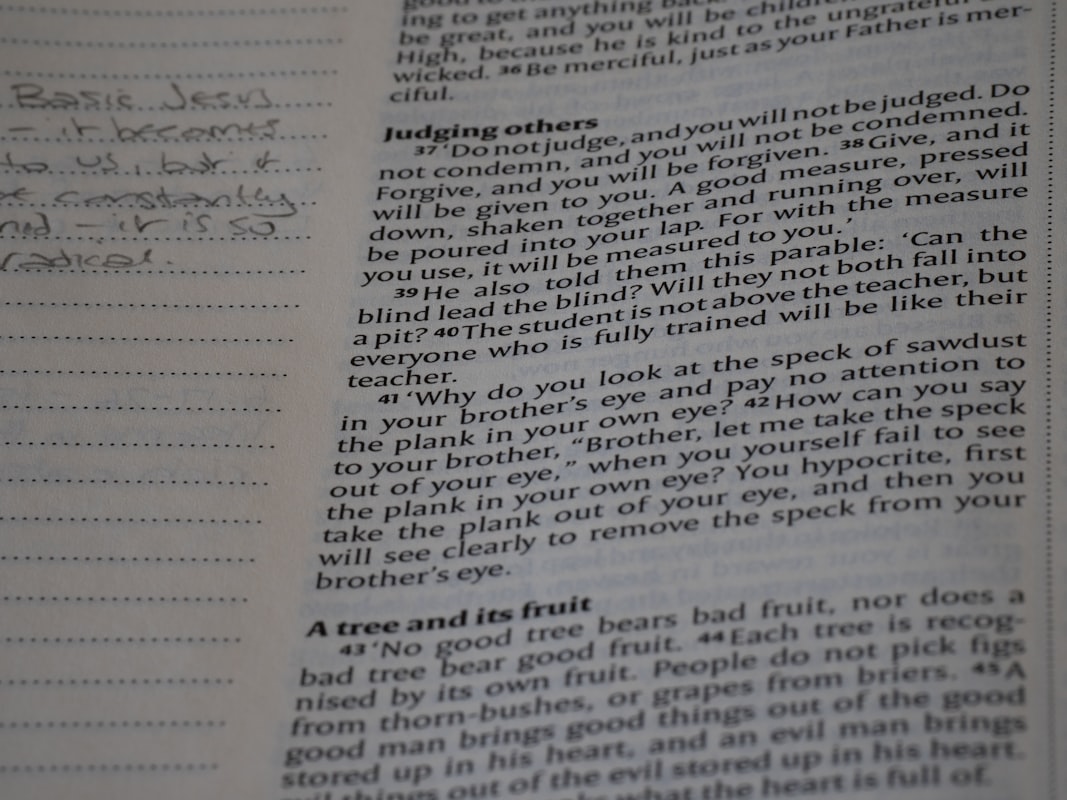 Basic Jesus
- it becomes
to us, but it
constantly
- it is so
radical.
good to
ing to get anything back.
be great, and you will be
High, because he is kind to the ungrateful
wicked. 36 Be merciful, just as your Father is mer-
ciful.
Judging others
37 ‘Do not judge, and you will not be judged. Do
not condemn, and you will not be condemned.
Forgive, and you will be forgiven. 38 Give, and it
will be given to you. A good measure, pressed
down, shaken together and running over, will
be poured into your lap. For with the measure
you use, it will be measured to you.’
39 He also told them this parable: ‘Can the
blind lead the blind? Will they not both fall into
a pit? 40 The student is not above the teacher, but
everyone who is fully trained will be like their
teacher.
41 ‘Why do you look at the speck of sawdust
in your brother’s eye and pay no attention to
the plank in your own eye? 42 How can you say
to your brother, “Brother, let me take the speck
out of your eye,” when you yourself fail to see
the plank in your own eye? You hypocrite, first
take the plank out of your eye, and then you
will see clearly to remove the speck from your
brother’s eye.
A tree and its fruit
43 ‘No good tree bears bad fruit, nor does a
bad tree bear good fruit. 44 Each tree is recog-
nised by its own fruit. People do not pick figs
from thorn-bushes, or grapes from briers. 45 A
good man brings good things out of the good
stored up in his heart, and an evil man brings
evil things out of the evil stored up in his heart.
what the heart is full of.